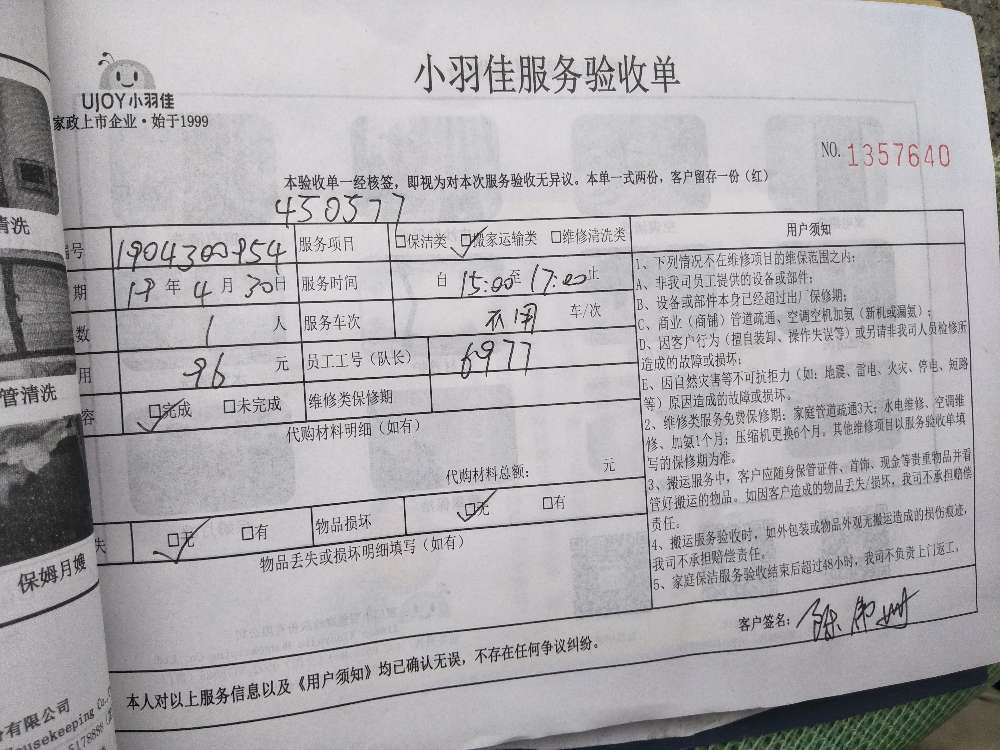 小羽佳服务验收单
UJOY小羽佳
家政上市企业·始于1999
NO. 1357640
本验收单一经核签，即视为对本次服务验收无异议。本单一式两份，客户留存一份（红）
450577
编号 1904300954 服务项目 □保洁类 □搬家运输类 □维修清洗类
期 19年4月30日 服务时间 自15:00至17:00止
数 1 人 服务车次 不用 车/次
用 96 元 员工工号（队长） 6977
容 □完成 □未完成 维修类保修期
代购材料明细（如有）
代购材料总额： 元
失 □无 □有 物品损坏 □无 □有
物品丢失或损坏明细填写（如有）
用户须知
1、下列情况不在维修项目的维保范围之内：
A、非我司员工提供的设备或部件；
B、设备或部件本身已经超过出厂保修期；
C、商业（商铺）管道疏通、空调空机加氨（新机或漏氨）；
D、因客户行为（擅自装卸、操作失误等）或另请非我司人员检修所
造成的故障或损坏；
E、因自然灾害等不可抗拒力（如：地震、雷电、火灾、停电、短路
等）原因造成的故障或损坏。
2、维修类服务免费保修期：家庭管道疏通3天；水电维修、空调维
修、加氨1个月；压缩机更换6个月。其他维修项目以服务验收单填
写的保修期为准。
3、搬运服务中，客户应随身保管证件、首饰、现金等贵重物品并看
管好搬运的物品。如因客户造成的物品丢失/损坏，我司不承担赔偿
责任。
4、搬运服务验收时，如外包装或物品外观无搬运造成的损伤痕迹，
我司不承担赔偿责任。
5、家庭保洁服务验收结束后超过48小时，我司不负责上门返工，
客户签名：
本人对以上服务信息以及《用户须知》均已确认无误，不存在任何争议纠纷。
清洗
管清洗
保姆月嫂
有限公司
ousekeeping Co.,